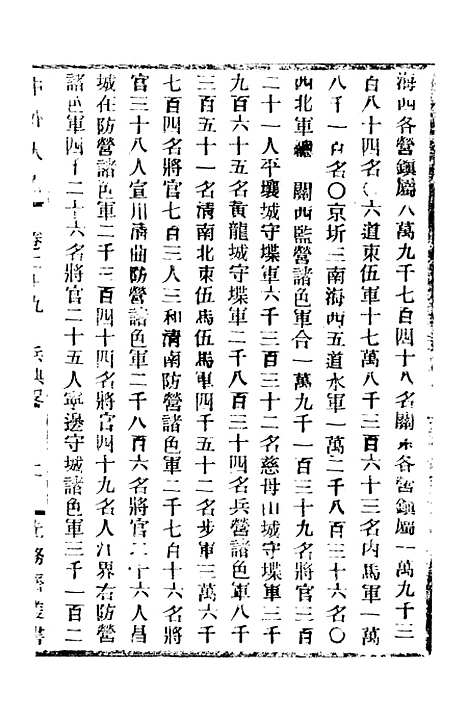 海西各營鎮屬八萬九千七百四十八名關東各營鎮屬一萬九千三
百八十四名〇六道東伍軍十七萬八千三百六十三名內馬軍一萬
八千一百名〇京圻三南海西五道水軍一萬二千八百三十六名〇
西北軍總 關西監營諸色軍合一萬九千一百三十九名將官三百
二十一人平壤城守堞軍六千三百三十二名慈母山城守堞軍三千
九百六十五名黃龍城守堞軍二千八百三十四名兵營諸色軍八千
三百五十一名淸南北東伍馬伍馬軍四千五十二名步軍三萬六千
七百四名將官七百三人三和淸南防營諸色軍二千七百十六名將
官三十八人宣川淸曲防營諸色軍二千八百六名將官二十六人昌
城在防營諸色軍二千三百四十四名將官四十九名人江界右防營
諸色軍四千二十六名將官二十五人寧邊守城諸色軍三千一百二